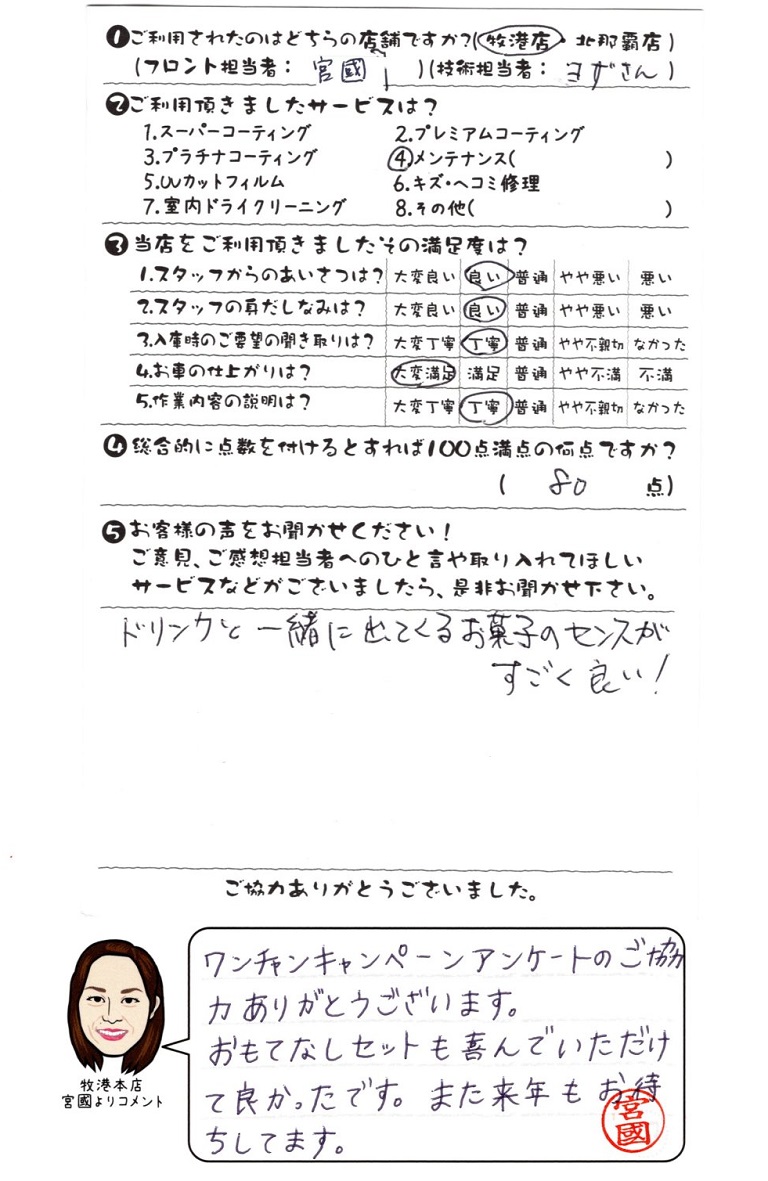 ❶ご利用されたのはどちらの店舗ですか?(牧港店・北那覇店)
(フロント担当者: 宮國 )(技術担当者: ヨずさん)
❷ご利用頂きましたサービスは?
1.スーパーコーティング 2.プレミアムコーティング
3.プラチナコーティング ④.メンテナンス( )
5.UVカットフィルム 6.キズ・ヘコミ修理
7.室内ドライクリーニング 8.その他( )
❸当店をご利用頂きましたその満足度は?
1.スタッフからのあいさつは? 大変良い 良い 普通 やや悪い 悪い
2.スタッフの身だしなみは? 大変良い 良い 普通 やや悪い 悪い
3.入庫時のご要望の聞き取りは? 大変丁寧 丁寧 普通 やや不親切 なかった
4.お車の仕上がりは? 大変満足 満足 普通 やや不満 不満
5.作業内容の説明は? 大変丁寧 丁寧 普通 やや不親切 なかった
❹総合的に点数を付けるとすれば100点満点の何点ですか?
( 80 点)
❺お客様の声をお聞かせください!
ご意見、ご感想担当者へのひと言や取り入れてほしい
サービスなどがございましたら、是非お聞かせ下さい。
ドリンクと一緒に出てくるお菓子のセンスが
すごく良い!
ご協力ありがとうございました。
ワンチャンキャンペーンアンケートのご協
力ありがとうございます。
おもてなしセットも喜んでいただけ
て良かったです。また来年もお待
ちしてます。
宮國
牧港本店
宮國よりコメント